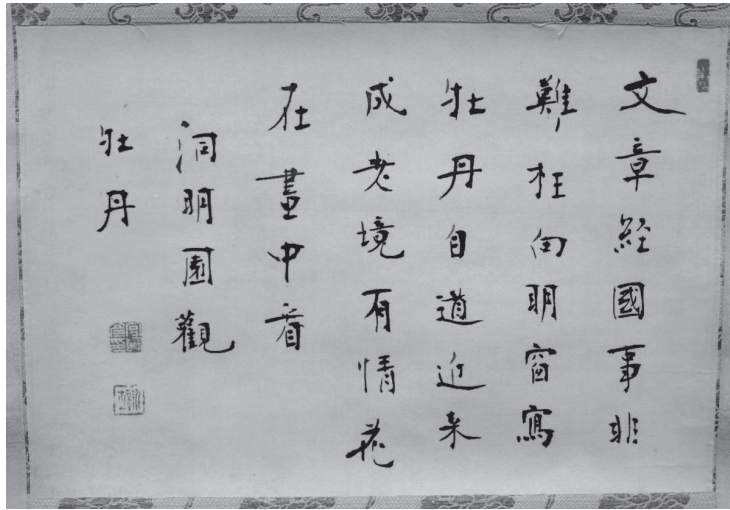 文章經國事非
難枉向明窗寫
牡丹自道近来
成老境有情花
在畫中看
洞明園觀
牡丹